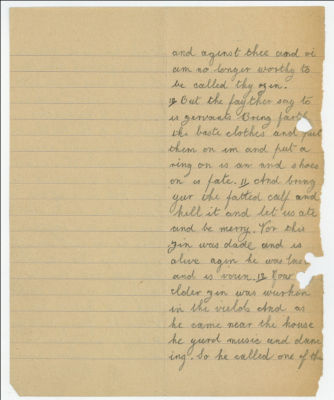 and aginst thee and oi
am no longer worthy to
be called thy zin.
18 But the fayther say to
is zervants Bring forth
the baste clothes and put
them on im and put a
ring on is an and shoes
on is fate. 11 And bring
yur the fatted calf and
kill it and let us ate
and be merry. For this
zin was dade and is
alive agin he was las
and is voun. 13 Now
elder zin was wurken
in the vields And as
he came near the house
he yurd music and danc
ing. So he called one of th